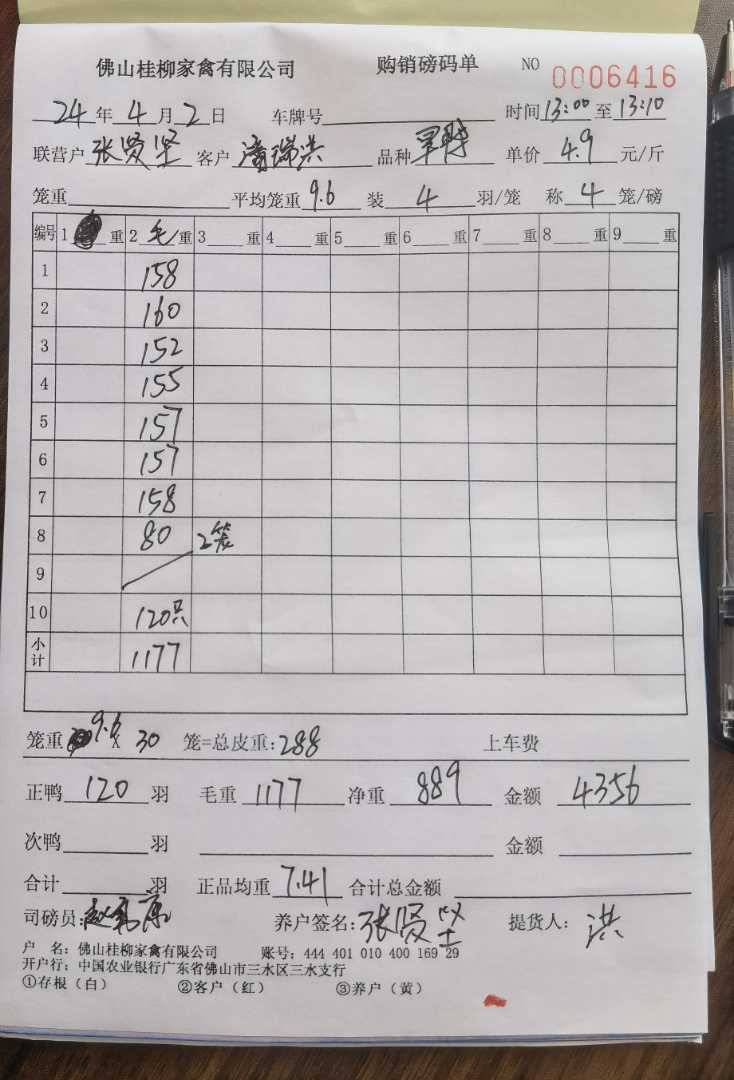 佛山桂柳家禽有限公司 购销磅码单 NO 0006416
24年4月2日 车牌号 时间13:00至13:10
联营户 张贤坚 客户 潘瑞洪 品种 单价 4.9 元/斤
笼重 平均笼重 9.6 装 4 羽/笼 称 4 笼/磅
编号 1 重 2 毛/重 3 重 4 重 5 重 6 重 7 重 8 重 9 重
1 158
2 160
3 152
4 155
5 157
6 157
7 158
8 80 2笼
9
10 120只
小计 1177
笼重 9.6 x 30 笼=总皮重:288 上车费
正鸭 120 羽 毛重 1177 净重 889 金额 4356
次鸭 羽 金额
合计 羽 正品均重 7.41 合计总金额
司磅员: 养户签名:张贤坚 提货人: 洪
户 名: 佛山桂柳家禽有限公司 账号: 444 401 010 400 169 29
开户行: 中国农业银行广东省佛山市三水区三水支行
①存根(白) ②客户(红) ③养户(黄)